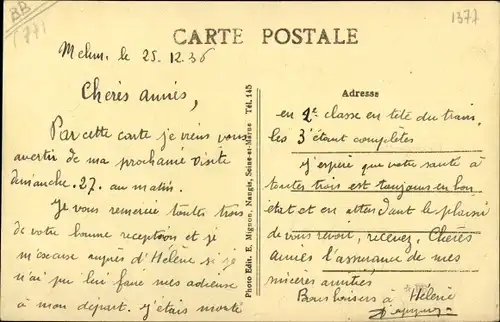 BB
771
1377
CARTE POSTALE
Melun, le 25.12.36
Chères amies,
Par cette carte je viens vous
avertir de ma prochaine visite
dimanche. 27. au matin.
Je vous remercie toutes trois
de votre bonne reception et je
m'excuse auprès d'Hélène si je
n'ai pu lui faire mes adieux
à mon départ. J'étais monté
Photo Edit. E. Mignon, Nangis, Seine-et-Marne Tél. 145
Adresse
en 2e classe en tête du train,
les 3e étant complètes
J'espère que votre santé à
toutes trois est toujours en bon
état et en attendant le plaisir
de vous revoir, recevez, Chères
Amies l'assurance de mes
sincères amitiés
Bons baisers à Hélène